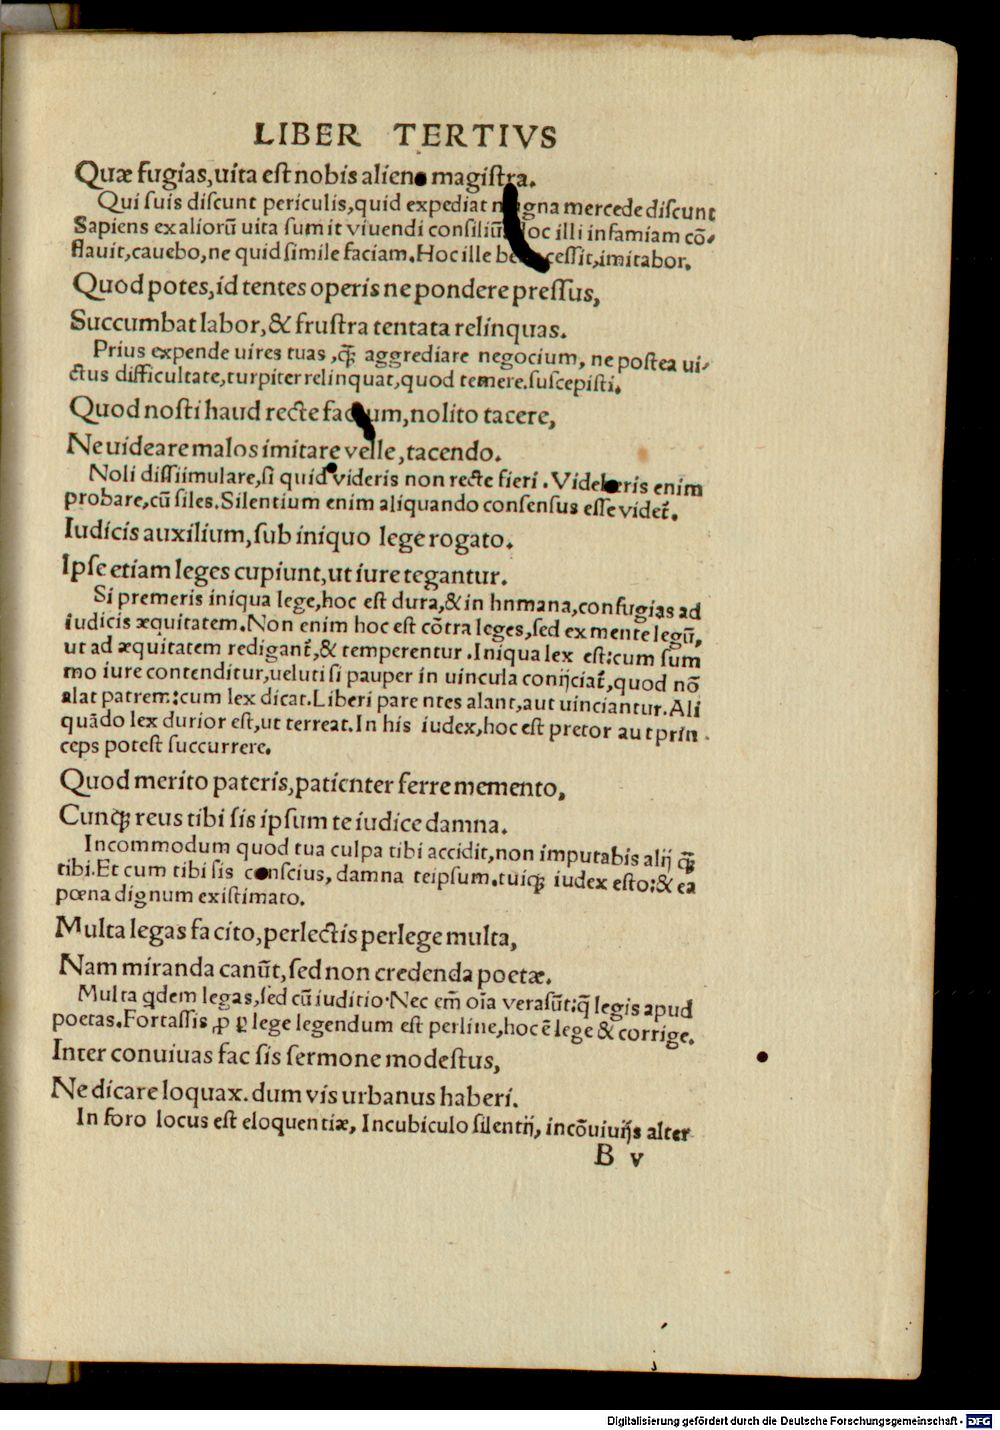 LIBER TERTIVS
Quæ fugias,uita est nobis aliena magistra.
Qui suis discunt periculis,quid expediat magna mercede discunt
Sapiens ex aliorū uita sumit viuendi consiliū. Hoc illi infamiam cō-
flauit,cauebo,ne quid simile faciam.Hoc ille bene cessit,imitabor.
Quod potes,id tentes operis ne pondere pressus,
Succumbat labor,& frustra tentata relinquas.
Prius expende uires tuas ,ꝗ̃ aggrediare negocium, ne postea ui-
ctus difficultate,turpiter relinquat,quod temere.suscepisti.
Quod nosti haud recte factum,nolito tacere,
Ne uideare malos imitare velle,tacendo.
Noli dissiimulare,si quid videris non recte fieri . Videberis enim
probare,cū siles.Silentium enim aliquando consensus esse videt᷑.
Iudicis auxilium,sub iniquo lege rogato.
Ipse etiam leges cupiunt,ut iure tegantur.
Si premeris iniqua lege,hoc est dura,& in hnmana,confugias ad
iudicis æquitatem.Non enim hoc est cōtra leges,sed ex mente legū,
ut ad æquitatem redigant᷑,& temperentur .Iniqua lex est:cum sum
mo iure contenditur,ueluti si pauper in uincula conijciat᷑,quod nō
alat patrem:cum lex dicat.Liberi pare ntes alant,aut uinciantur.Ali
quādo lex durior est,ut terreat.In his iudex,hoc est pretor aut prin-
ceps potest succurrere.
Quod merito pateris,patienter ferre memento,
Cunꝗ reus tibi sis ipsum te iudice damna.
Incommodum quod tua culpa tibi accidit,non imputabis alij ꝗ̃
tibi.Et cum tibi sis conscius, damna teipsum.tuiꝗ iudex esto:& ea
pœna dignum existimato.
Multa legas facito,perlectis perlege multa,
Nam miranda canūt,sed non credenda poetæ.
Multa ꝗdem legas,sed cū iuditio·Nec em̄ oīa vera sūt:q̄ legis apud
poetas.Fortassis ,ꝓ ꝑ lege legendum est perline,hoc ē lege & corrige.
Inter conuiuas fac sis sermone modestus,
Ne dicare loquax. dum vis urbanus haberi.
In foro locus est eloquentiæ, In cubiculo silentij, in cōuiuijs alter
B v
Digitalisierung gefördert durch die Deutsche Forschungsgemeinschaft - DFG